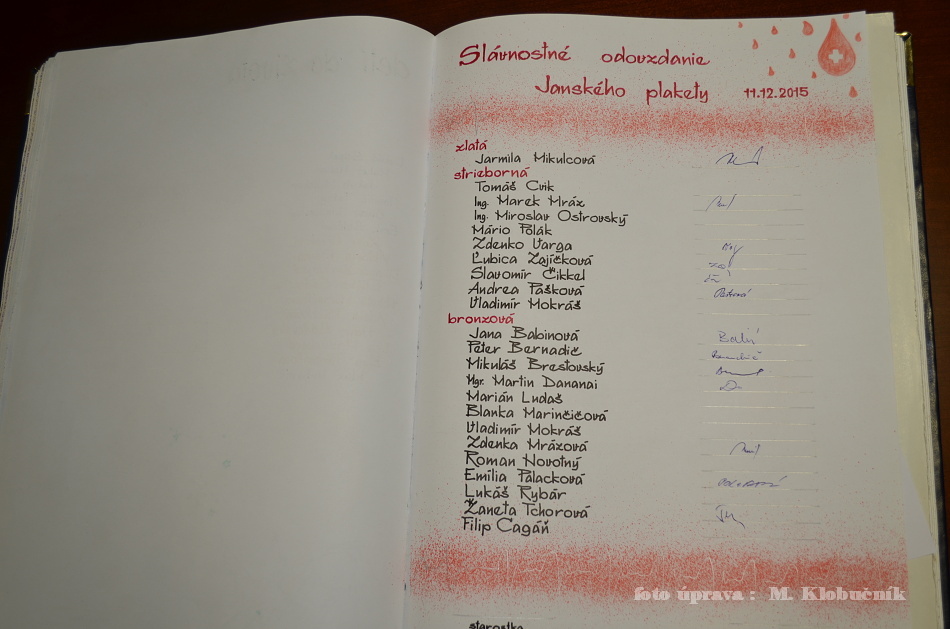 Slávnostné odovzdanie
Janského plakety 11.12.2015
zlatá
Jarmila Mikulcová
strieborná
Tomáš Cvik
Ing. Marek Mráz
Ing. Miroslav Ostrovský
Mário Polák
Zdenko Varga
Ľubica Zajíčková
Slavomír Čikkel
Andrea Pašková
Vladimír Mokráš
bronzová
Jana Babinová
Peter Bernadič
Mikuláš Brestovský
Mgr. Martin Dananai
Marián Ludaš
Blanka Marinčičová
Vladimír Mokráš
Zdenka Mrázová
Roman Novotný
Emília Palacková
Lukáš Rybár
Žaneta Tchorová
Filip Cagáň
starostka
foto úprava : M. Klobučník